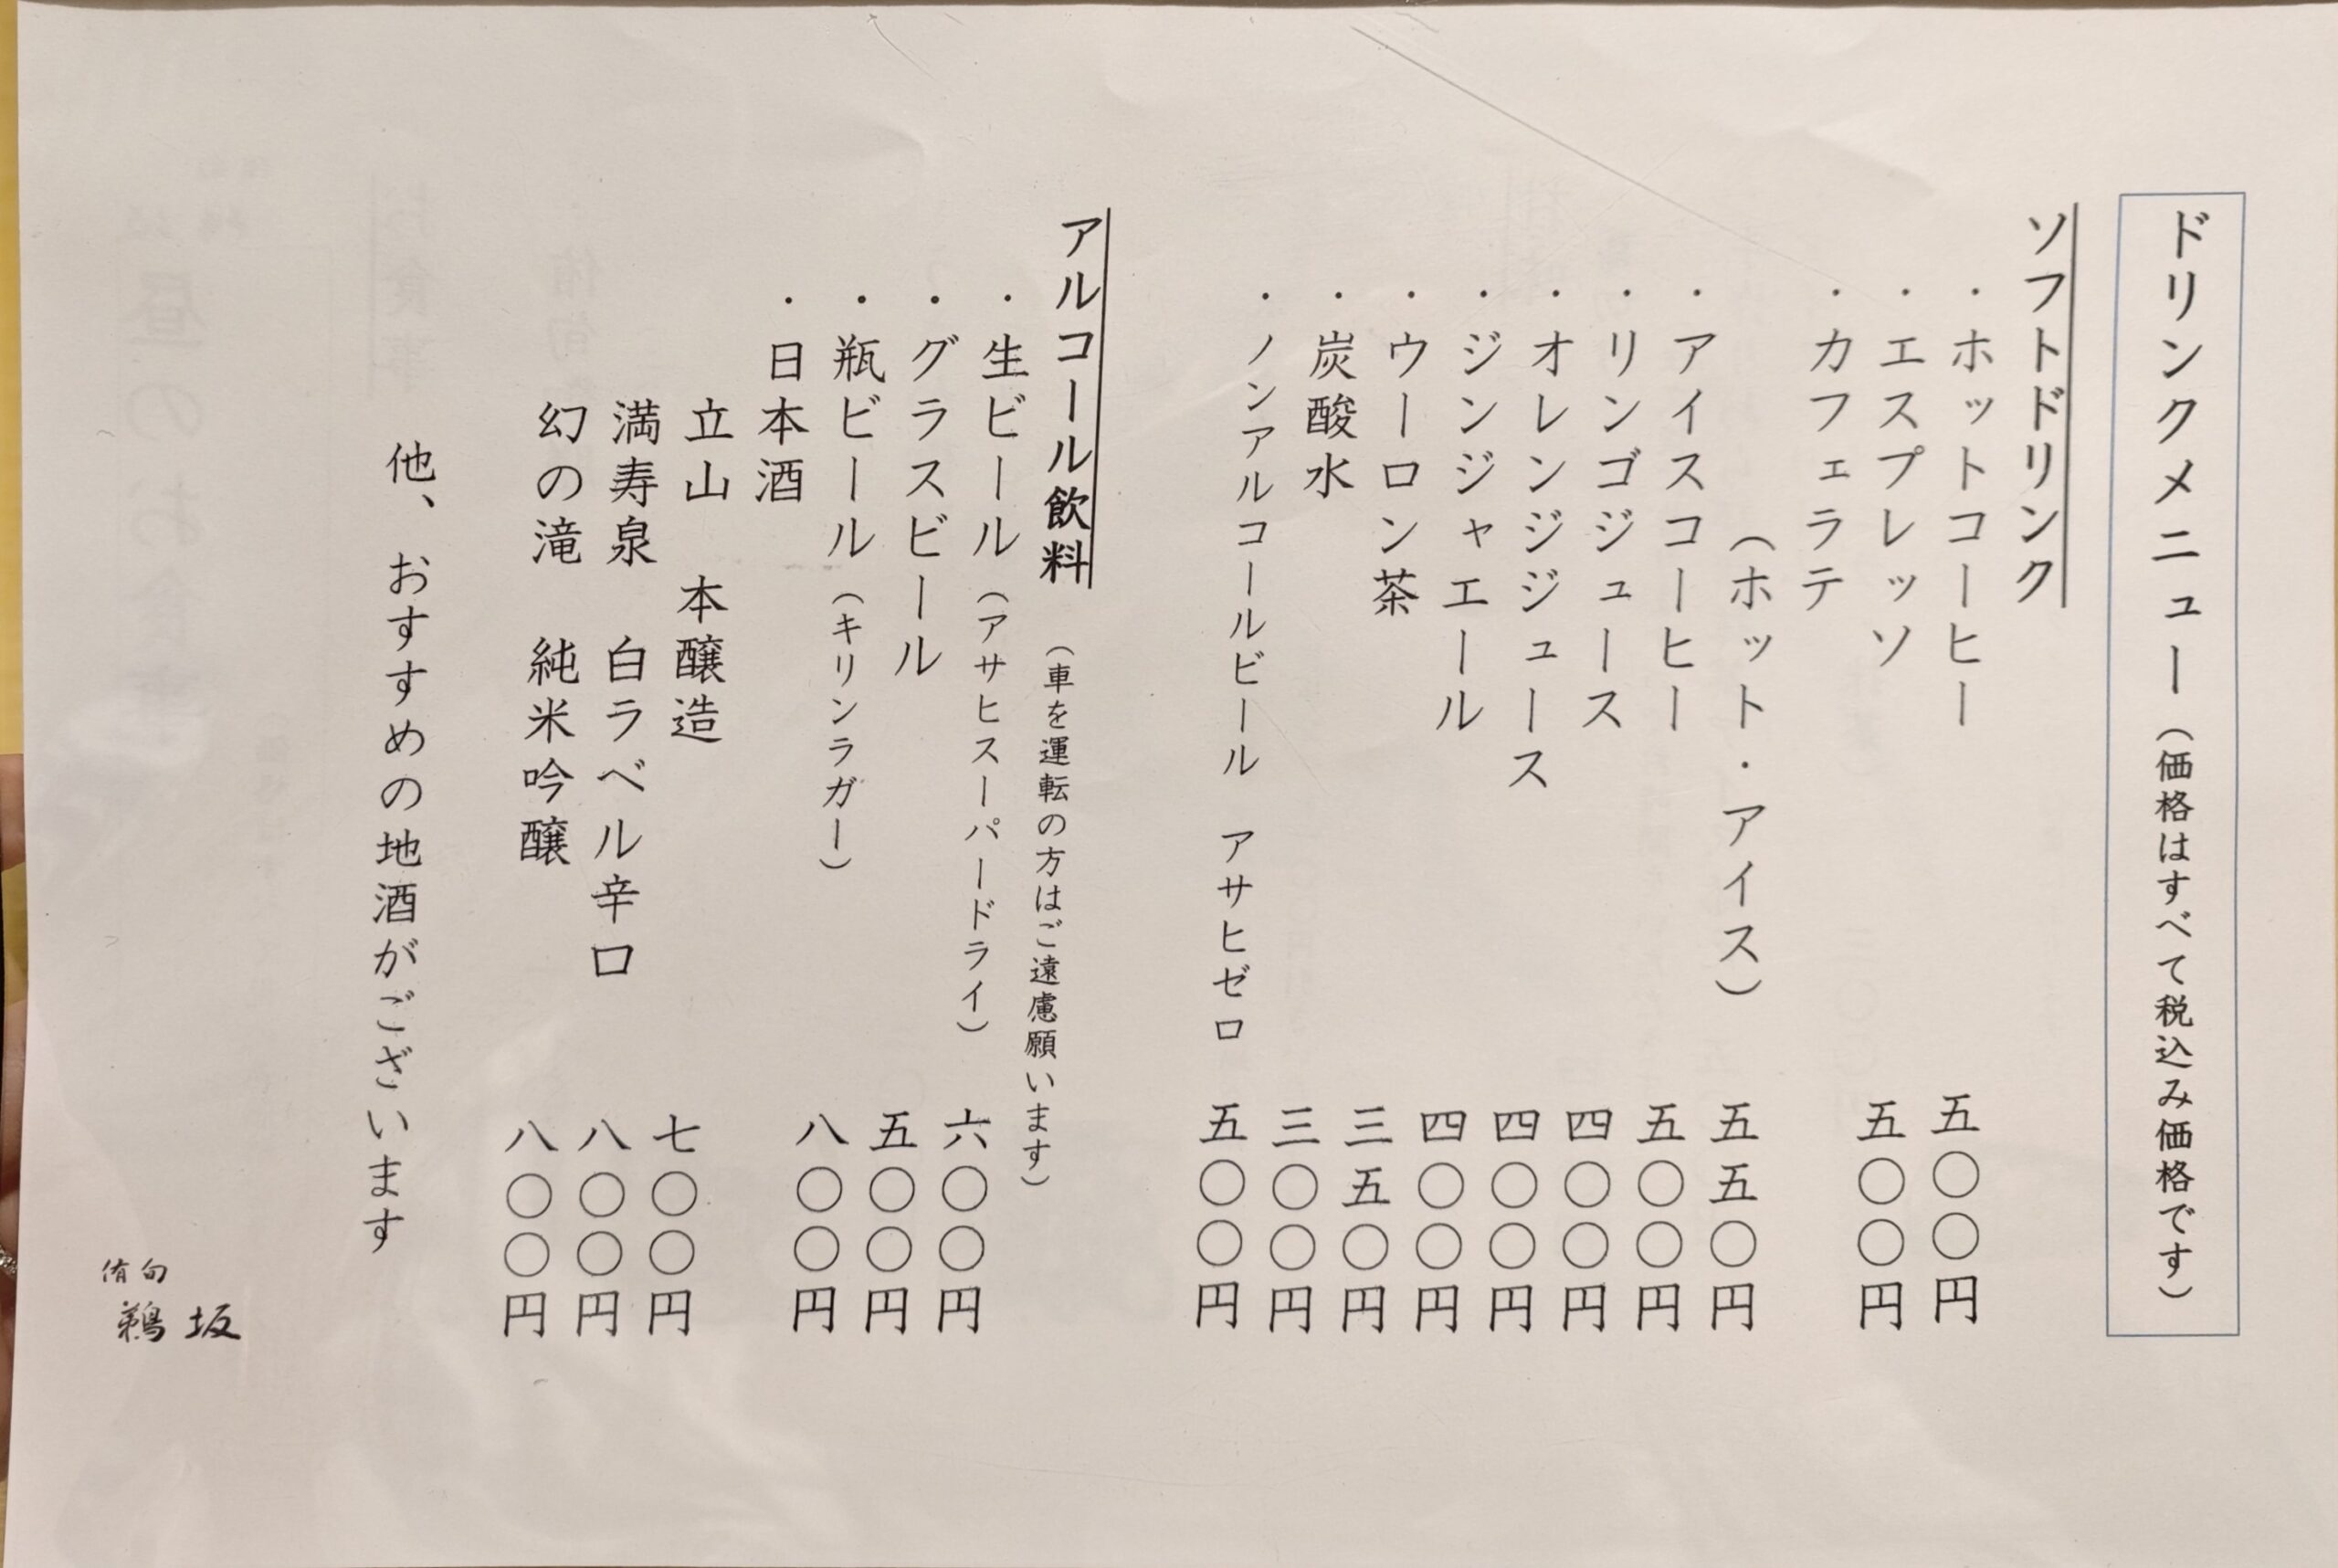 ドリンクメニュー（価格はすべて税込み価格です）
ソフトドリンク
・ホットコーヒー 五〇〇円
・エスプレッソ 五〇〇円
・カフェラテ
（ホット・アイス） 五五〇円
・アイスコーヒー 五〇〇円
・リンゴジュース 四〇〇円
・オレンジジュース 四〇〇円
・ジンジャエール 四〇〇円
・ウーロン茶 三五〇円
・炭酸水 三〇〇円
・ノンアルコールビール アサヒゼロ 五〇〇円
アルコール飲料（車を運転の方はご遠慮願います）
・生ビール（アサヒスーパードライ） 六〇〇円
・グラスビール 五〇〇円
・瓶ビール（キリンラガー） 八〇〇円
・日本酒
立山 本醸造 七〇〇円
満寿泉 白ラベル辛口 八〇〇円
幻の滝 純米吟醸 八〇〇円
他、おすすめの地酒がございます
侑旬
鵜坂